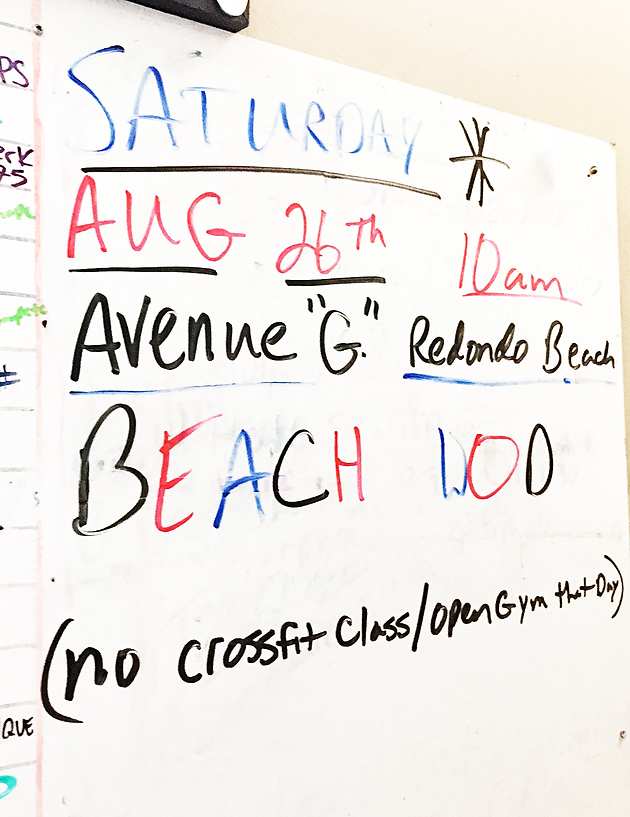 SATURDAY
AUG 26th 10am
Avenue "G." Redondo Beach
BEACH WOD
(no crossfit class/open Gym that Day)
PS
erk
QUE